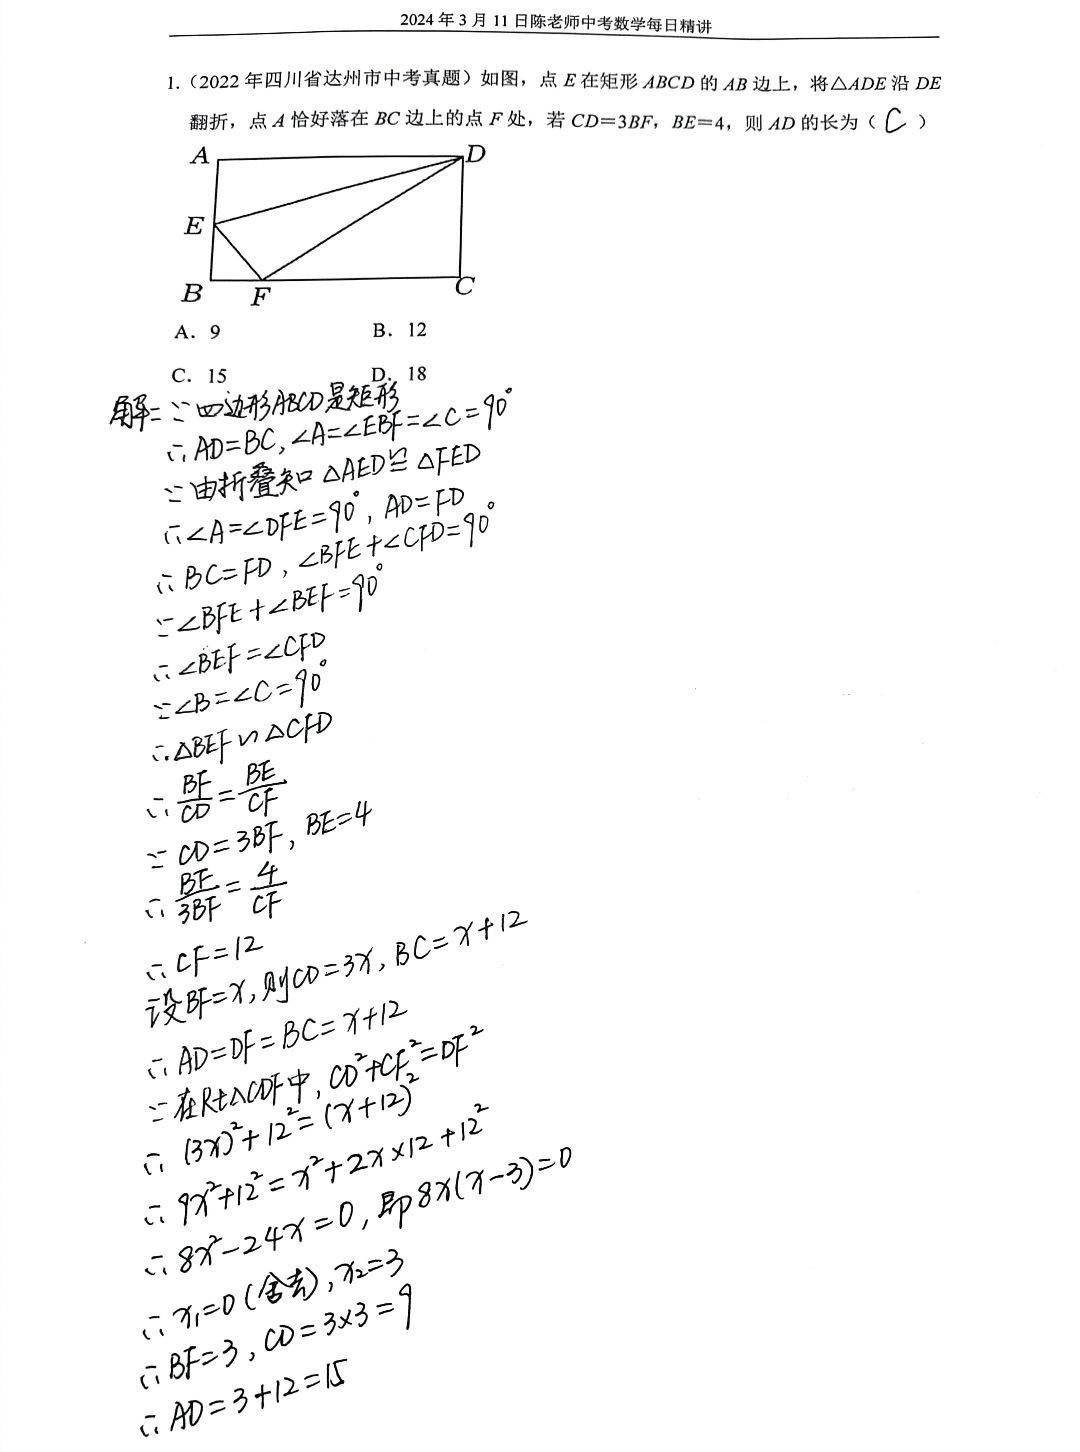 2024年3月11日陈老师中考数学每日精讲
1.（2022年四川省达州市中考真题）如图，点E在矩形ABCD的AB边上，将△ADE沿DE
翻折，点A恰好落在BC边上的点F处，若CD=3BF，BE=4，则AD的长为（ C ）
A
D
E
B
F
C
A. 9
B. 12
C. 15
D. 18
解：∵四边形ABCD是矩形
∴AD=BC，∠A=∠EBF=∠C=90°
∵由折叠知△AED≌△FED
∴∠A=∠DFE=90°，AD=FD
∴BC=FD，∠BFE+∠CFD=90°
∵∠BFE+∠BEF=90°
∴∠BEF=∠CFD
∵∠B=∠C=90°
∴△BEF∽△CFD
∴BF/CD=BE/CF
∵CD=3BF，BE=4
∴BF/3BF=4/CF
∴CF=12
设BF=x，则CD=3x，BC=x+12
∴AD=DF=BC=x+12
∵在Rt△CDF中，CD²+CF²=DF²
∴(3x)²+12²=(x+12)²
∴9x²+12²=x²+2x×12+12²
∴8x²-24x=0，即8x(x-3)=0
∴x₁=0(舍去)，x₂=3
∴BF=3，CD=3×3=9
∴AD=3+12=15